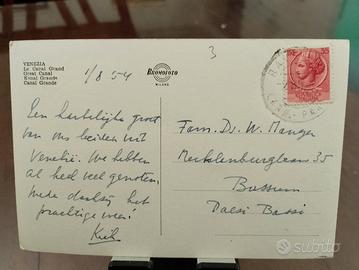 VENEZIA
Le Canal Grand
Great Canal
Kanal Grande
Canal Grande
BROMOFOTO
MILANO
3
1/8 54
Een hartelijke groet
van ons beiden uit
Venetië. We hebben
al heel veel genoten,
mede dankzij het
prachtige weer!
Fam. Ds. W. Manger
Mecklenburglaan 35
Bussum
Paesi Bassi
subito